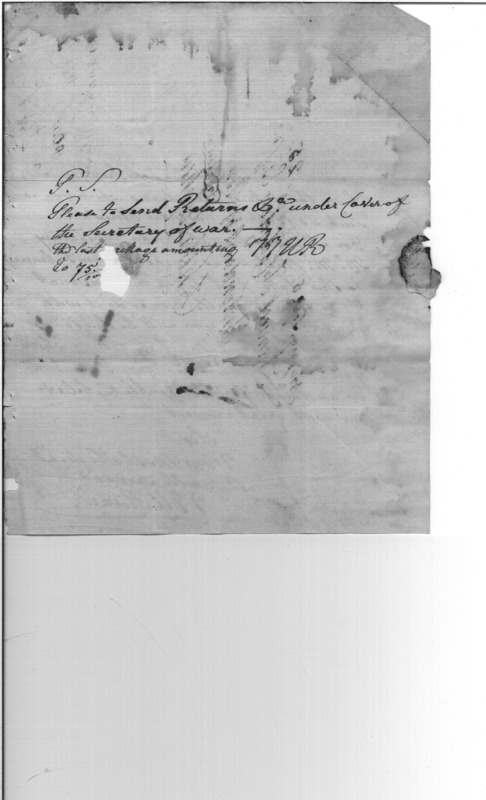 P. S.
Please to Send Returns &ca under Cover of
the Secretary of war.
the last package amounting
to 75